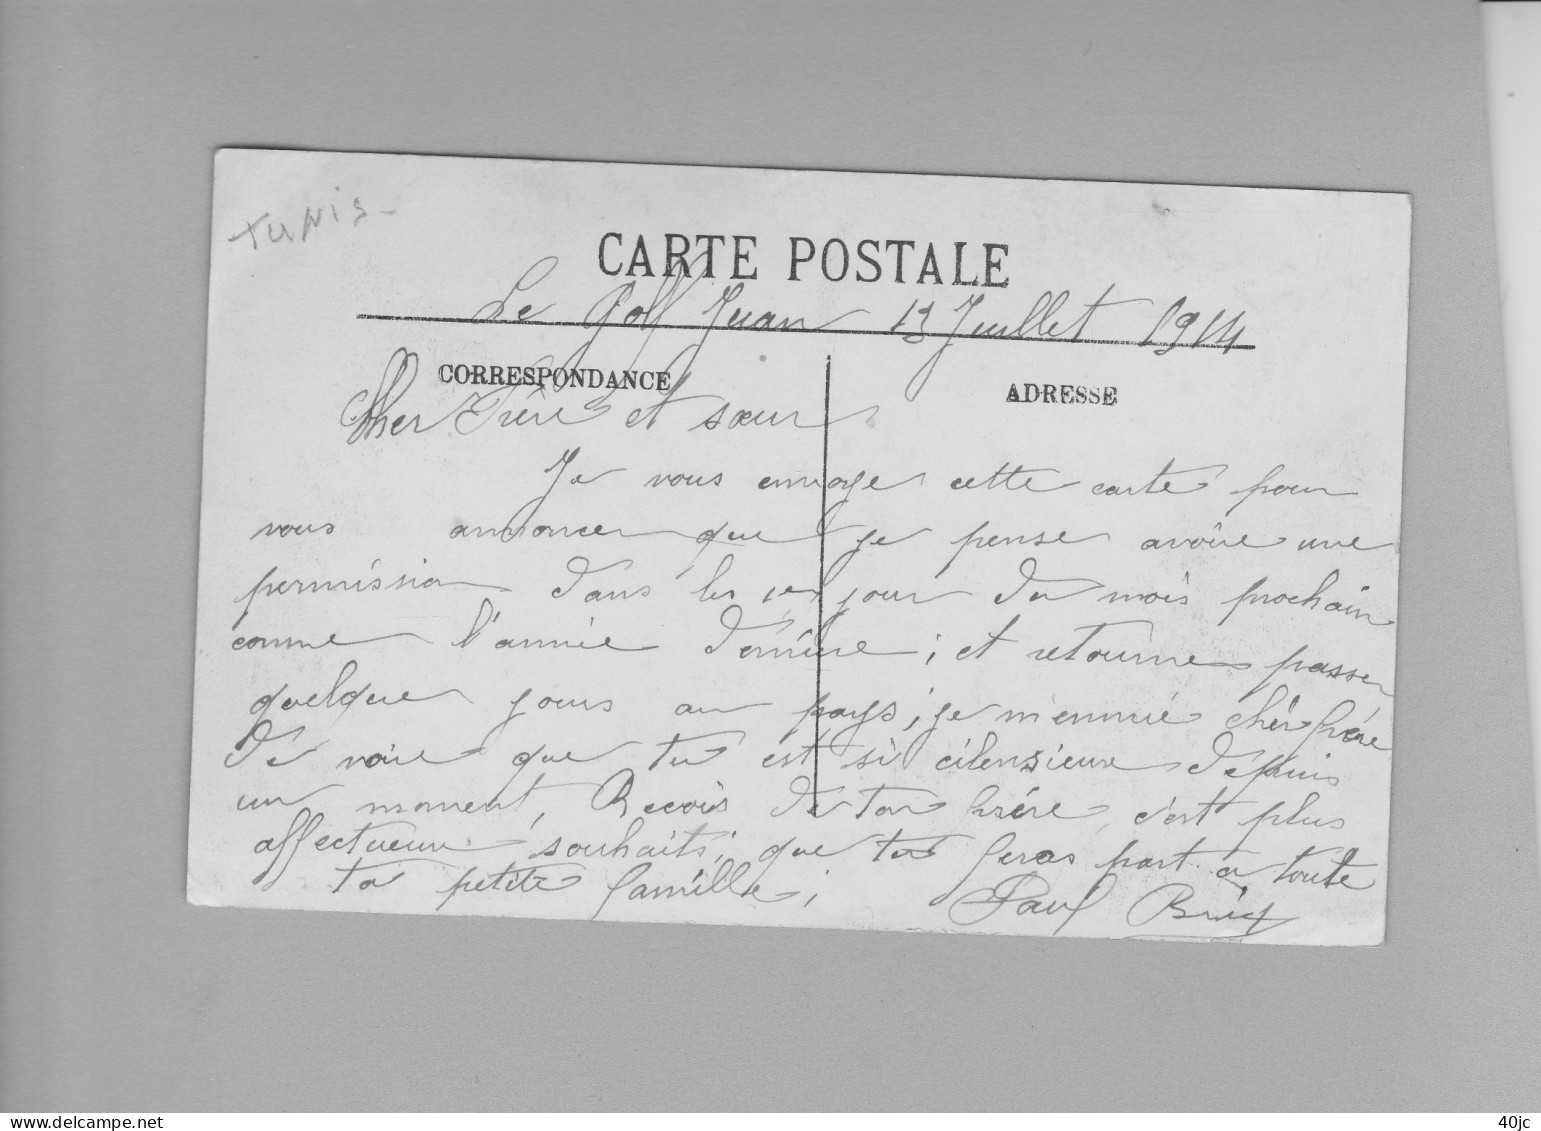 TUNIS -
CARTE POSTALE
Le Golf Juan 13 Juillet 1914
CORRESPONDANCE
ADRESSE
Cher Frère et sœur
Je vous envoye cette carte pour
vous annoncer que je pense avoire une
permission dans les 1er jour du mois prochain
comme l'année dernière ; et retourne passer
quelque jours au pays ; je m'ennuie chèr frère
de voire que tu est si cilensieux depuis
un moment, Recois de ton frére c'est plus
affectueux souhaits ; que tu feras part a toute
ta petite famille ; Paul
www.delcampe.net
40jc